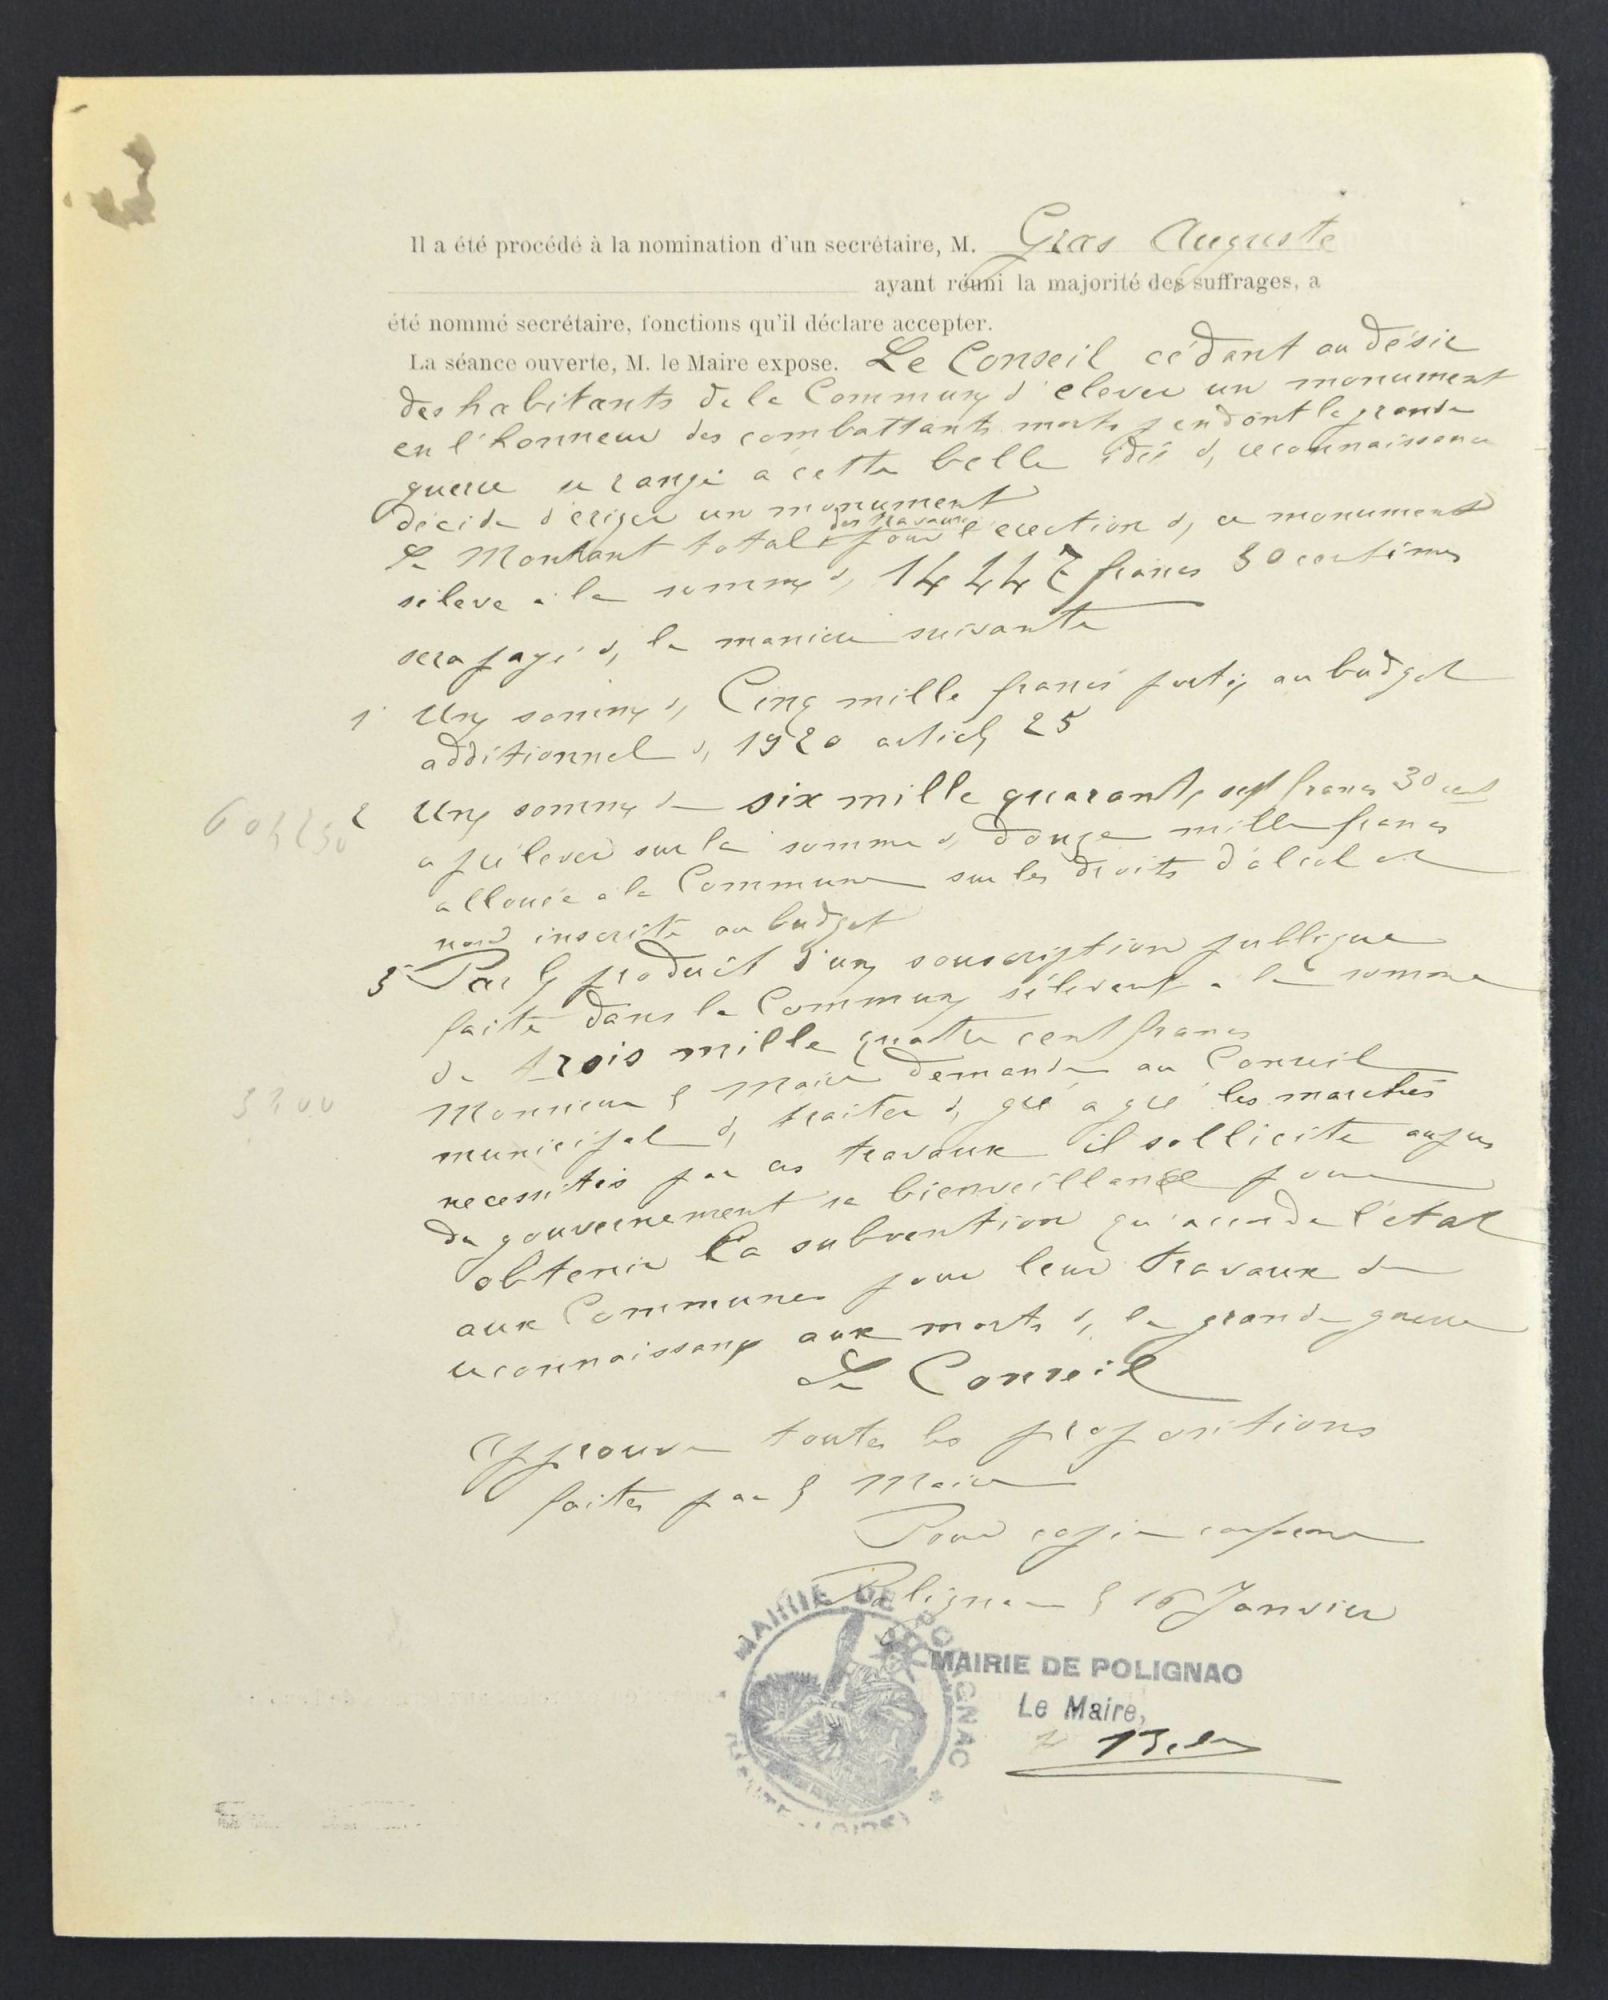 Il a été procédé à la nomination d'un secrétaire, M. Gras Auguste
ayant réuni la majorité des suffrages, a
été nommé secrétaire, fonctions qu'il déclare accepter.
La séance ouverte, M. le Maire expose. Le Conseil cédant au désir
des habitants de la Commune d'elever un monument
en l'honneur des combattants morts pendant la grande
guerre se range à cette belle idée de reconnaissance
décide d'ériger un monument
des travaux
Le Montant total pour l'erection de ce monument
s'éleve à la somme de 14447 francs 30 centimes
sera payé de la maniere suivante
1° Une somme de Cinq mille francs portée au budget
additionnel de 1920 article 25
6047 30
2 Une somme de six mille quarante sept francs 30 cent
a prélever sur la somme de douze mille francs
allouée a la Commune sur les droits d'alcol et
non inscrite au budget
3° Par le produit d'une souscription publique
faite dans la Commune s'élevant a la somme
de trois mille quatre cent francs
3400
Monsieur le Maire demande au Conseil
municipal de traiter de gré a gré les marchés
necessités par ces travaux il sollicite auprès
du gouvernement sa bienveillance pour
obtenir la subvention qu'accorde l'état
aux Communes pour leur travaux de
reconnaissance aux morts de la grande guerre
Le Conseil
Approuve toutes les propositions
faites par le Maire
Pour copie conforme
Polignac le 16 Janvier
MAIRIE DE POLIGNAC
(HAUTE-LOIRE)
MAIRIE DE POLIGNAC
Le Maire,